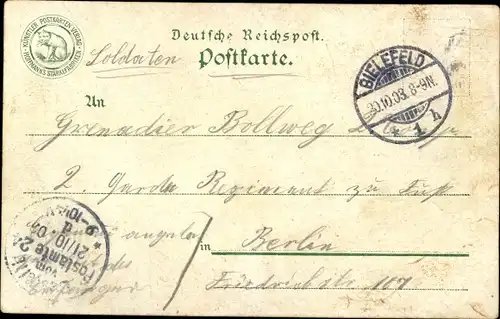 KÜNSTLER POSTKARTEN VERLAG
HOFFMANN'S STÄRKEFABRIKEN
Deutsche Reichspost.
Soldaten Postkarte.
BIELEFELD
20.10.03. 8-9N.
* 1 h
An
Grenadier Bollweg
2. Garde Regiment zu Fuß
in Berlin
Friedrichstr 107
Postamte 24
vom
21/10
9-10½V